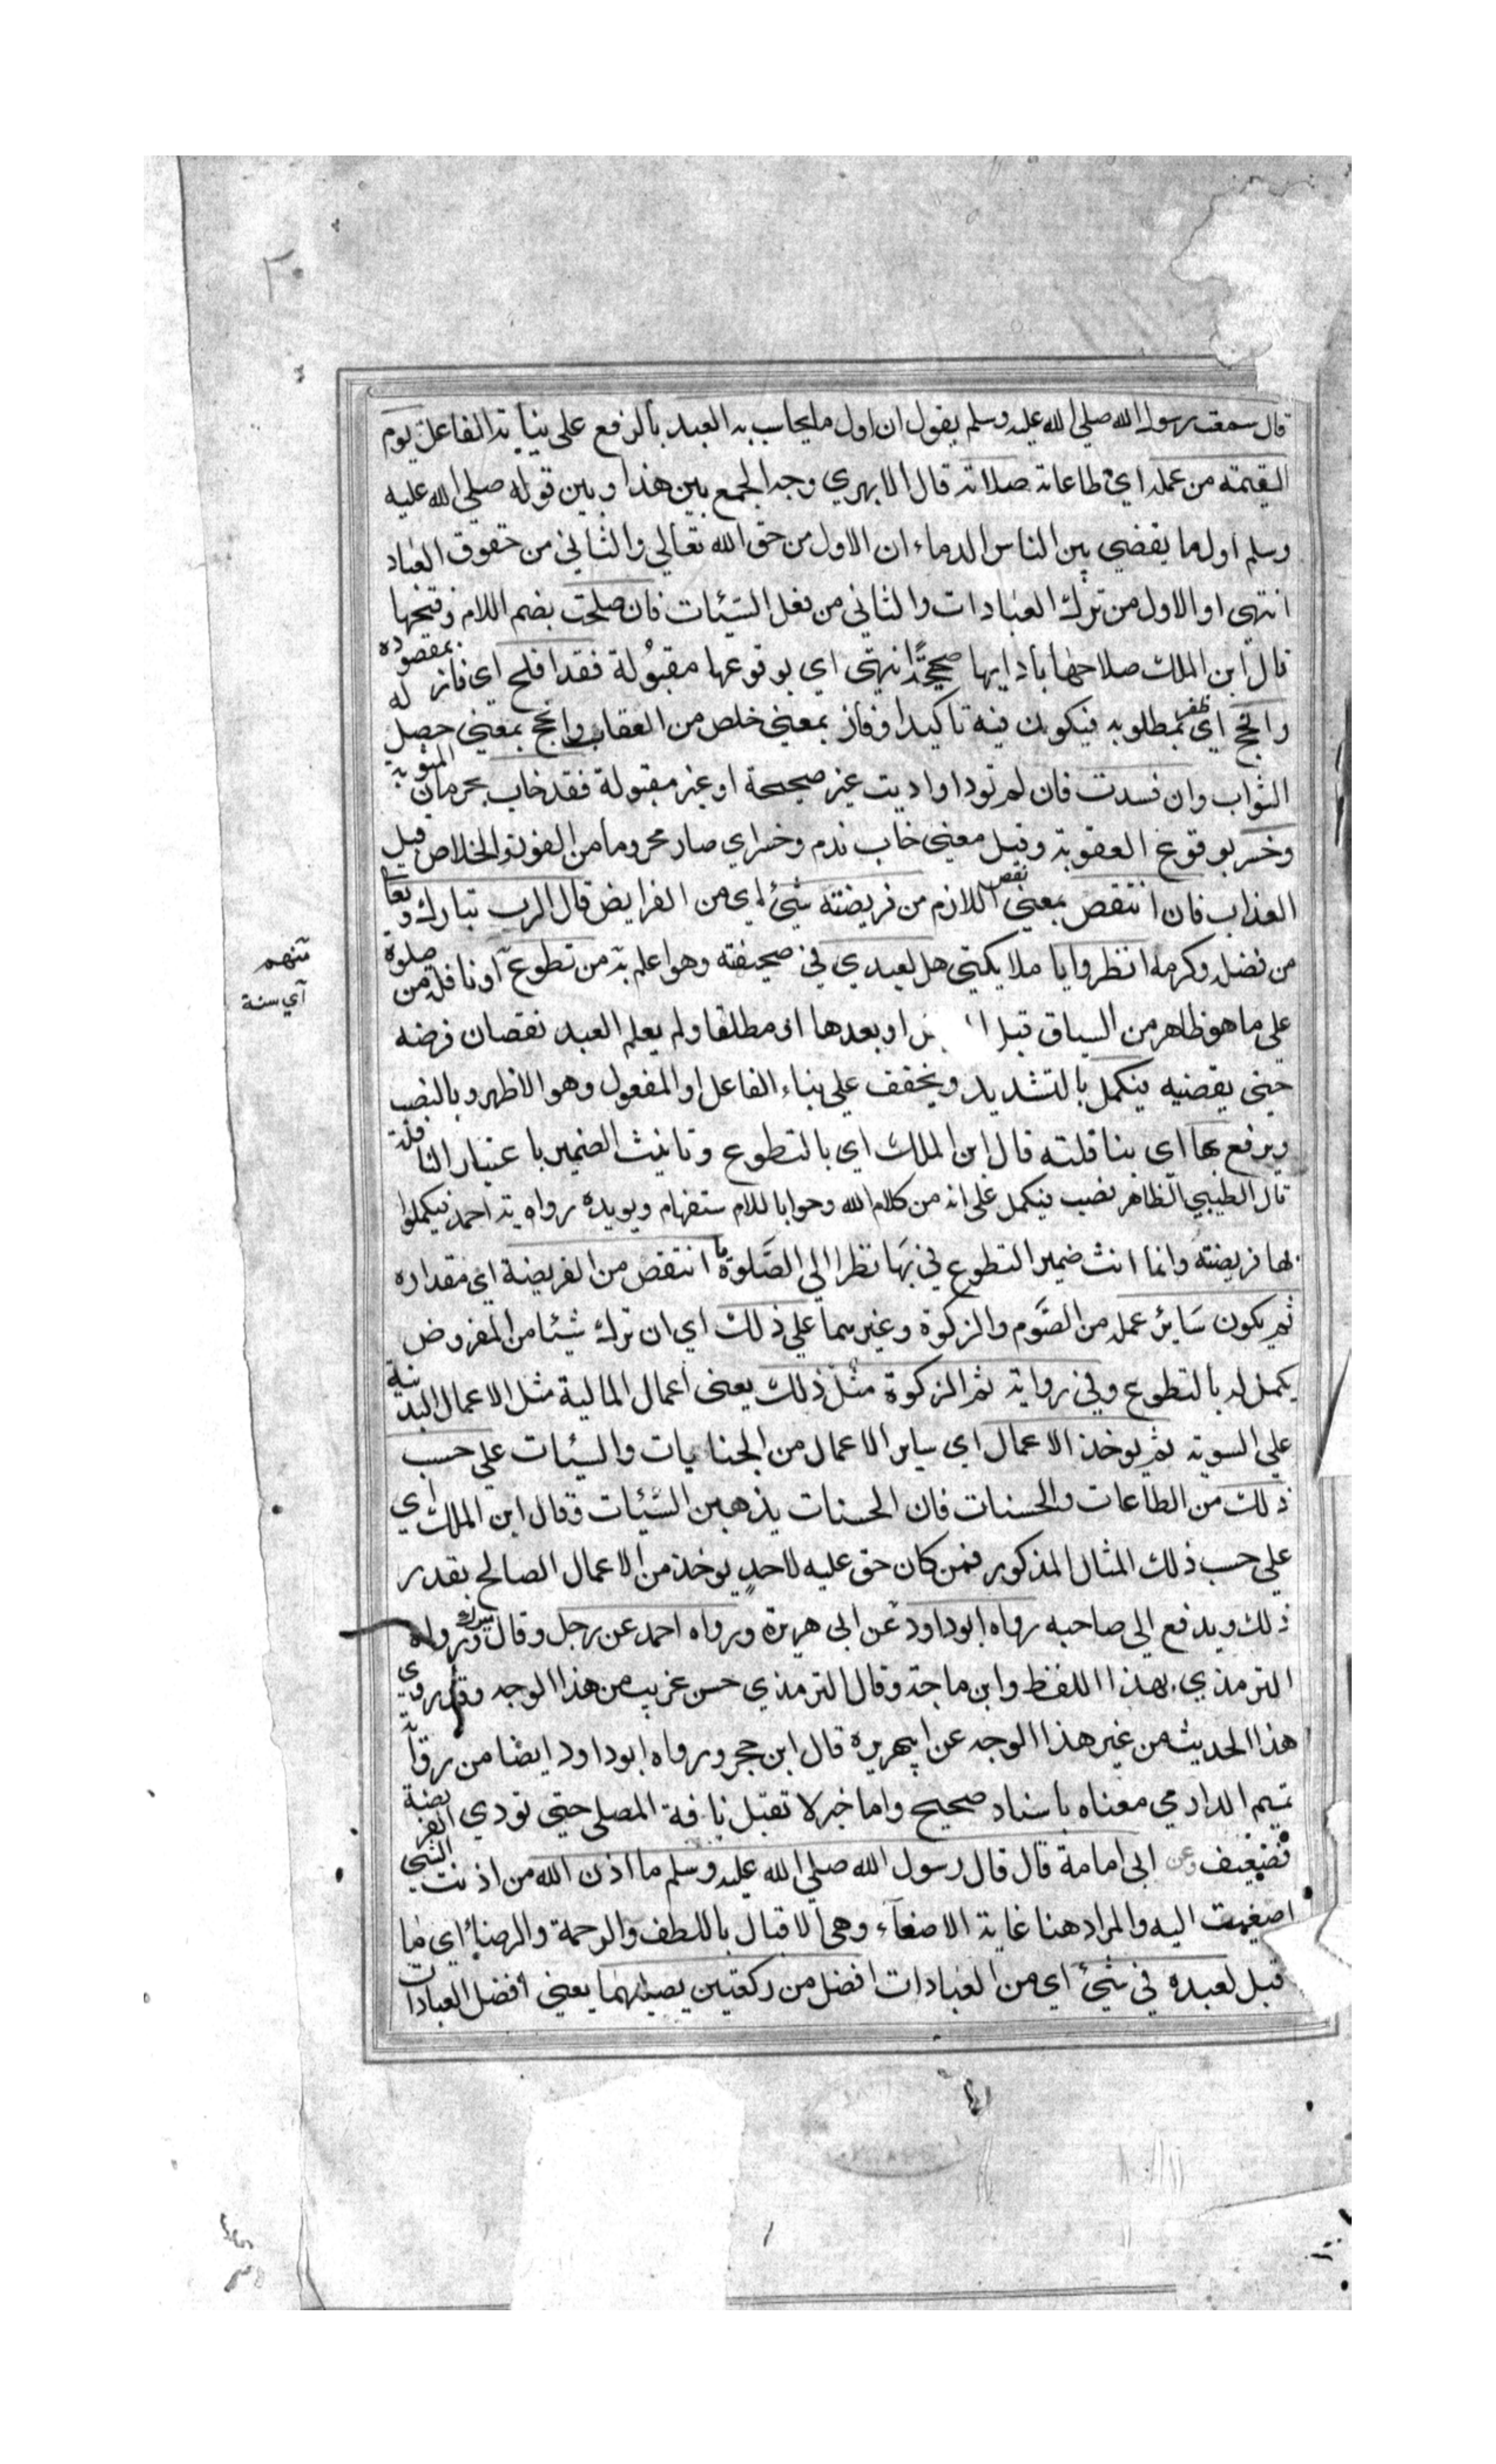 ٣٠
قال سمعت رسول الله صلي الله عليه وسلم يقول ان اول ما يحاسب به العبد بالرفع علي نيابة الفاعل يوم
القيمة من عمله اي طاعاته صلاته قال الابهري وجه الجمع بين هذا وبين قوله صلي الله عليه
وسلم اول ما يقضي بين الناس الدماء ان الاول من حق الله تعالي والثاني من حقوق العباد
انتهي او الاول من ترك العبادات والثاني من فعل السيّئات فان صلحت بضم اللام وفتحها
قال ابن الملك صلاحها بادايها صحيحةً انتهي اي بوقوعها مقبُولة فقد افلح اي فاز بمقصوده
وانجح اي ظفر بمطلوبه فيكون فيه تاكيد او فاز بمعني خلص من العقاب وانجح بمعني حصل له
الثواب وان فسدت فان لم تود او اديت غير صحيحة او غير مقبولة فقد خاب بحرمان المثوبة
وخسر بوقوع العقوبة وقيل معني خاب ندم وخسر اي صار محروما من الفوز والخلاص قبل
العذاب فان انتقص بمعني نقص اللازم من فريضته شئ اي من الفرايض قال الرب تبارك وتعا
من فضله وكرمه انظروا يا ملايكتي هل لعبدي في صحيفته وهو اعلم به من تطوع او نافلة من صلوة
منهم
اي سنة
علي ما هو ظاهر من السياق قبل او بعدها او مطلقا ولم يعلم العبد نقصان فرضه
حتي يقضيه فيكمل بالتشديد ويخفف علي بناء الفاعل او المفعول وهو الاظهر وبالنصب
ويرفع بها اي بنافلته قال ابن الملك اي بالتطوع وتانيث الضمير باعتبار النافلة
قال الطيبي الظاهر نصب فيكمل علي انه من كلام الله وجوابا للاستفهام ويويده رواية احمد فيكملوا
بها فريضته وانما انث ضمير التطوع في بها نظرا الي الصّلوة ما انتقص من الفريضة اي مقداره
ثم يكون سَائر عمله من الصَّوم والزكوة وغيرهما علي ذلك اي ان ترك شيئا من المفروض
يكمل له بالتطوع وفي رواية ثم الزكوة مثل ذلك يعني اعمال المالية مثل الاعمال البدنية
علي السوية ثم يوخذ الاعمال اي ساير الاعمال من الجنايات والسيئات علي حسب
ذلك من الطاعات والحسنات فان الحسنات يذهبن السّيّئات وقال ابن الملك اي
علي حسب ذلك المثال المذكور فمن كان حق عليه لاحدٍ يوخذ من الاعمال الصالح بقدر
ذلك ويدفع الي صاحبه رواه ابوداود عن ابي هريرة ورواه احمد عن رجل وقال ميرك ورواه
الترمذي بهذا اللفظ وابن ماجة وقال الترمذي حسن غريب من هذا الوجه وقد روي
هذا الحديث من غير هذا الوجه عن ابيهريره قال ابن حجر ورواه ابوداود ايضا من رواية
تميم الدارمي معناه باسناد صحيح واما خبر لا تقبل نافة المصلي حتي تودي الفريضة
فضعيف وعن ابي امامة قال قال رسول الله صلي الله عليه وسلم ما اذن الله من اذنت الشي
اصغيت اليه والمراد هنا غاية الاصغآء وهي الاقبال باللطف والرحمة والرضا اي ما
قبل لعبده في شيئ اي من العبادات افضل من ركعتين يصيليهما يعني افضل العبادات